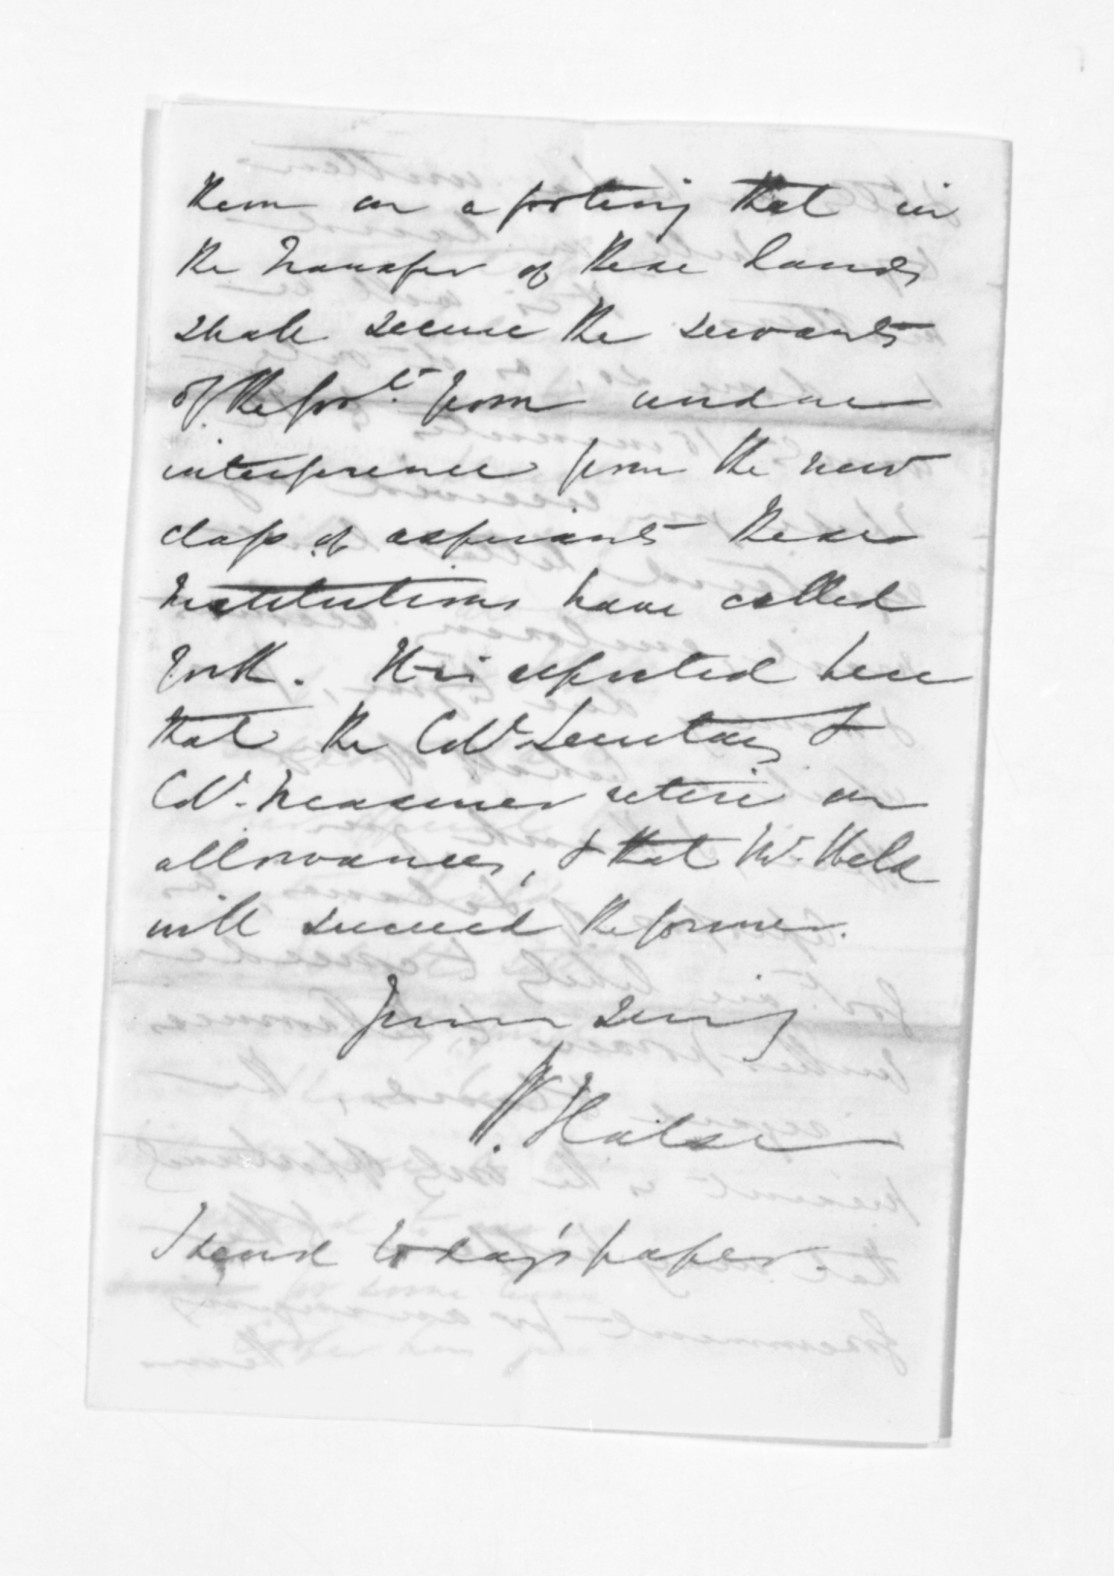 them on a footing that in
the transfer of these lands
shall secure the servants
of the Govt. from undue
interference from the new
class of aspirants these
Institutions have called
forth. It is reported here
that the Coll. Secretary &
Coll. Treasurer retire on
allowances, & that Mr. Weld
will succeed the former.
Yours truly
W. Halse
I send today's paper.